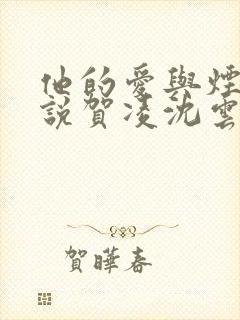 他的愛與煙
說賀凌沈雲
賀曄春